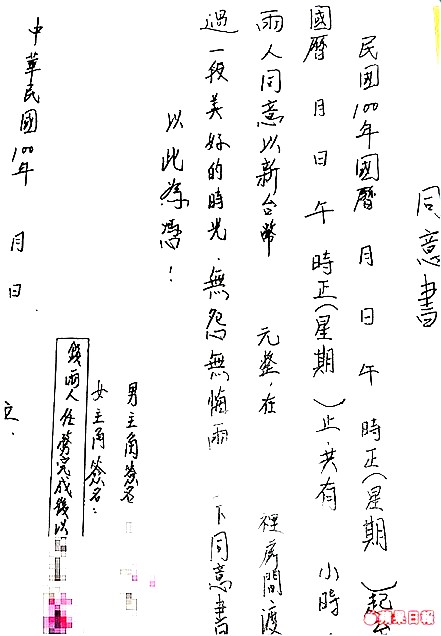 同意書
民國100年國曆 月 日 午 時正(星期 )起至
國曆 月 日 午 時正(星期 )止,共有 小時,
兩人同意以新台幣 元整,在 裡房間渡
過一段美好的時光,無怨無悔兩 下同意書
以此為憑!
男主角簽名
女主角簽名:
兩人任勞完成
立.
中華民國100年 月 日
蘋果日報